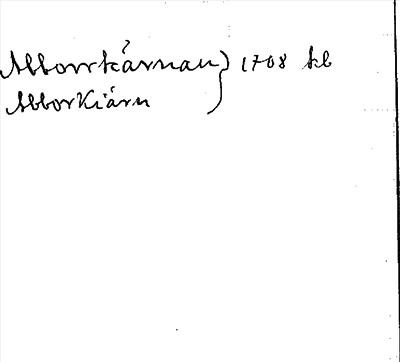 Abborrkärnan } 1708 kb
AbborKiärn